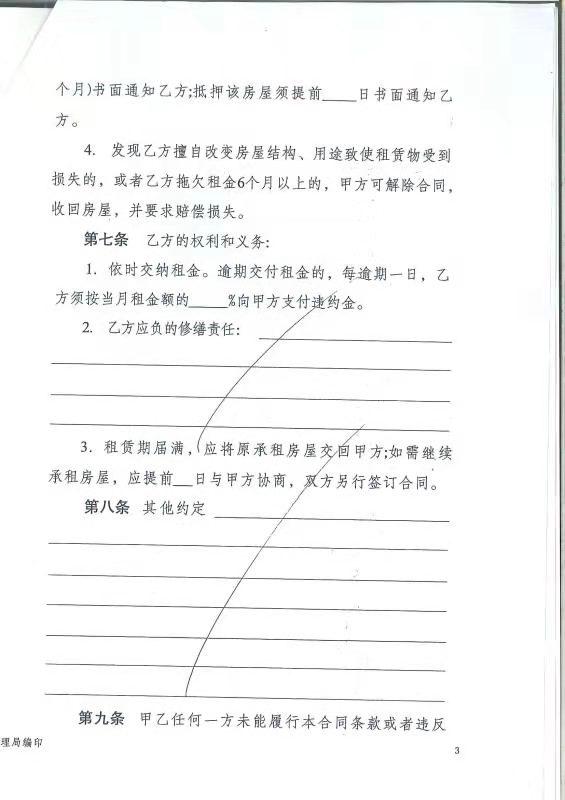 个月)书面通知乙方;抵押该房屋须提前____日书面通知乙
方。
4. 发现乙方擅自改变房屋结构、用途致使租赁物受到
损失的，或者乙方拖欠租金6个月以上的，甲方可解除合同，
收回房屋，并要求赔偿损失。
第七条 乙方的权利和义务:
1. 依时交纳租金。逾期交付租金的，每逾期一日，乙
方须按当月租金额的_____%向甲方支付违约金。
2. 乙方应负的修缮责任:
3. 租赁期届满，应将原承租房屋交回甲方;如需继续
承租房屋，应提前__日与甲方协商，双方另行签订合同。
第八条 其他约定
第九条 甲乙任何一方未能履行本合同条款或者违反
理局编印
3